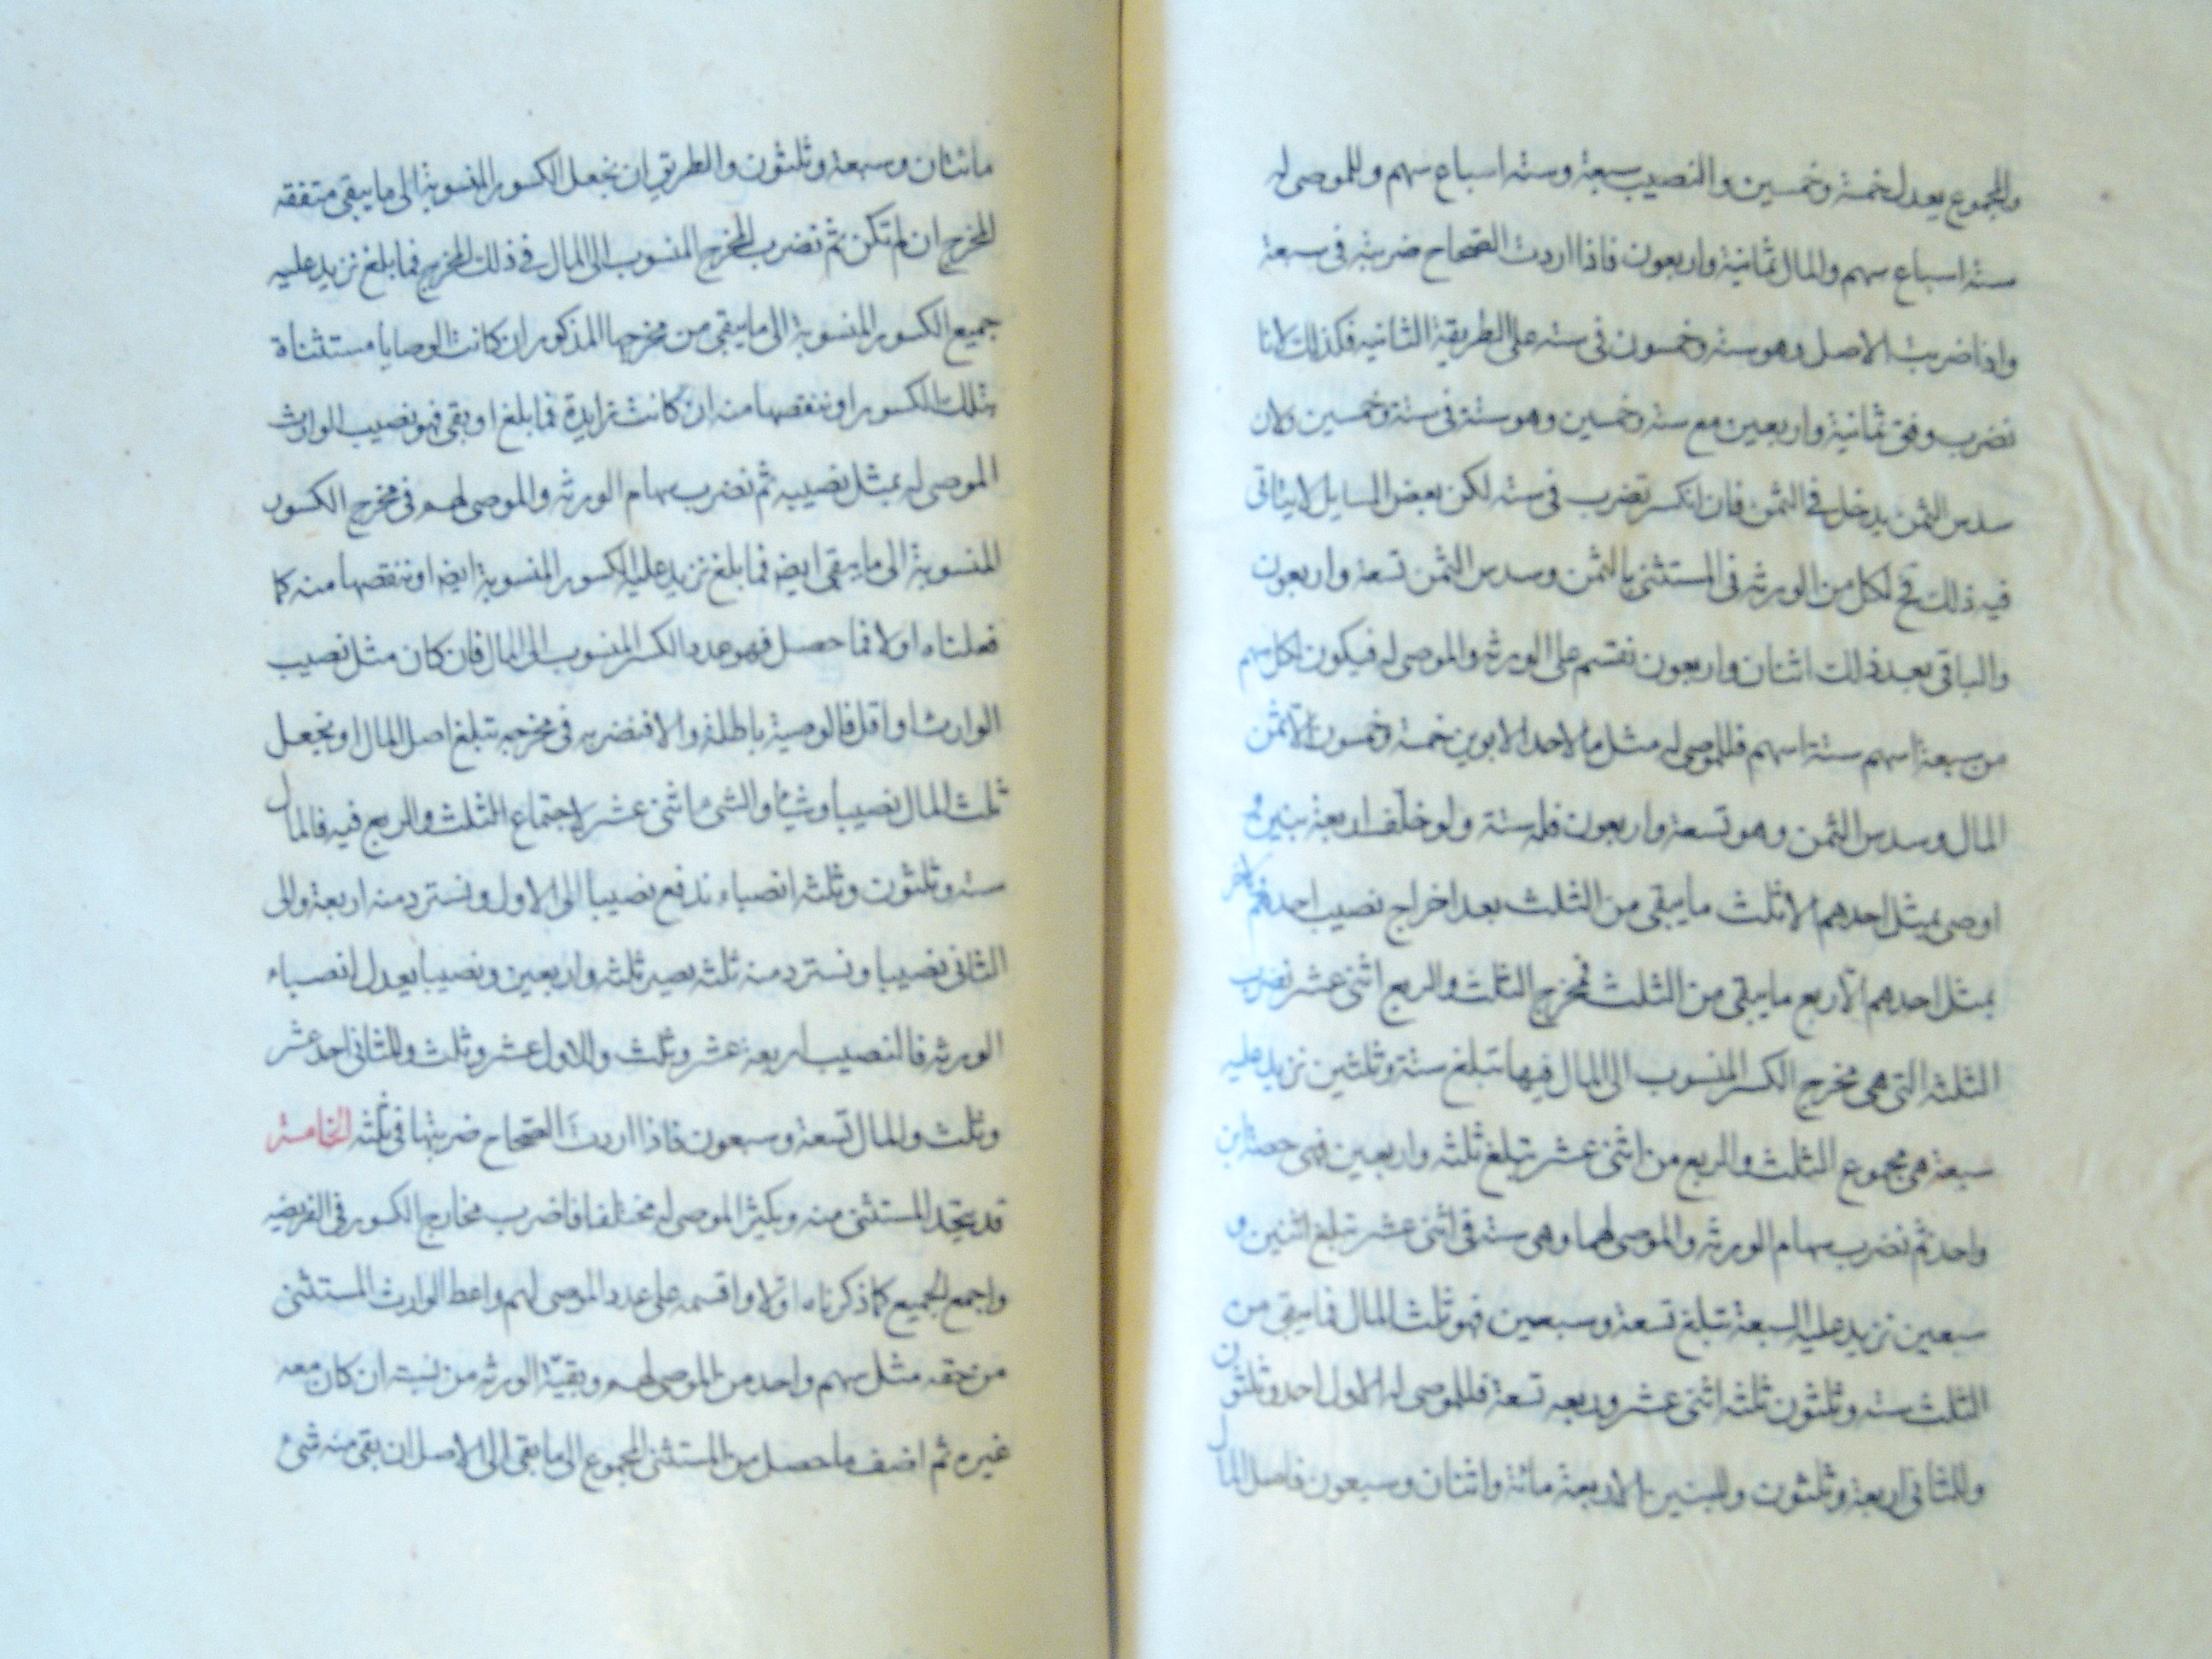 والمجموع يعدل خمسة وخمسين والنصيب سبعة وستة اسباع سهم وللموصى له
ستة اسباع سهم والمال ثمانية واربعون فاذا اردت الصحاح ضربته فى سبعة
واذا ضربت الاصل وهو ستة وخمسون فى ستة على الطريقة الثانيه فكذلك لانا
نضرب وفق ثمانية واربعين مع ستة وخمسين وهو ستة فى ستة وخمسين ولان
سدس الثمن يدخل فى الثمن فان انكسر تضرب فى ستة لكن بعض المسايل لايتاتى
فيه ذلك فح لكل من الورثه فى المستثنى بالثمن وسدس الثمن تسعة واربعون
والباقى بعد ذلك اثنان واربعون نقسم على الورثه والموصى له فيكون لكل سهم
من سبعة اسهم ستة اسهم فللموصى له مثل ما لاحد الابوين خمسة وخمسون الا ثمن
المال وسدس الثمن وهو تسعة واربعون فله ستة ولو خلف اربعة بنين
اوصى بمثل احدهم الا ثلث مايبقى من الثلث بعد اخراج نصيب احدهم
بمثل احدهم الا ربع مايبقى من الثلث فمخرج الثلث والربع اثنى عشر نضرب
الثلثه التى هى مخرج الكسر المنسوب الى المال فيها تبلغ ستة وثلثين نزيد عليه
سبعة هى مجموع الثلث والربع من اثنى عشر تبلغ ثلثه واربعين فهى حصة ابن
واحد ثم نضرب سهام الورثه والموصى لهما وهى ستة فى اثنى عشر تبلغ اثنين و
سبعين نزيد عليه السبعة تبلغ تسعة وسبعين فهو ثلث المال فمايبقى من
الثلث ستة وثلثون ثلثه اثنى عشر وربعه تسعة فللموصى له الاول احد وثلثون
وللثانى اربعة وثلثون وللبنين الاربعة مائة واثنان وسبعون فاصل المال
مائتان وسبعة وثلثون والطريق ان نجعل الكسور المنسوبة الى مايبقى متفقه
المخرج ان لم تكن ثم نضرب المخرج المنسوب الى المال فى ذلك المخرج فما بلغ نزيد عليه
جميع الكسور المنسوبة الى مايبقى من مخرجها المذكور ان كانت الوصايا مستثناة
بتلك الكسور او ننقصها منه ان كانت زايدة فما بلغ او بقى فهو نصيب الوارث
الموصى له بمثل نصيبه ثم نضرب سهام الورثه والموصى لهم فى مخرج الكسور
المنسوبة الى مايبقى ايضه فما بلغ نزيد عليه الكسور المنسوبة ايضه او ننقصها منه كما
فعلناه اولا فما حصل فهو عدد الكسر المنسوب الى المال فان كان مثل نصيب
الوارث او اقل فالوصية باطلة والا فنضربه فى مخرجه تبلغ اصل المال او نجعل
ثلث المال نصيبا وشيئا والشى ماثنى عشر لاجتماع الثلث والربع فيه فالمال
ستة وثلثون وثلثه انصباء ندفع نصيبا الى الاول ونسترد منه اربعة والى
الثانى نصيبا ونسترد منه ثلثه يصير ثلثه واربعين ونصيبا يعدل انصباء
الورثه فالنصيب اربعة عشر وثلث وللاول عشر وثلث وللثانى احد عشر
وثلث والمال تسعة وسبعون فاذا اردت الصحاح ضربتها فى ثلثه الخامسة
قد يتحد المستثنى منه ويكثر الموصى له مختلفا فاضرب مخارج الكسور فى الفريضه
واجمع الجميع كما ذكرناه اولا واقسمه على عدد الموصى لهم واعط الوارث المستثنى
من حقه مثل سهم واحد من الموصى لهم وبقية الورثه من نسبته ان كان معه
غيره ثم اضف ما حصل من المستثنى المجموع الى ما بقى الى الاصل ان بقى منه شئ